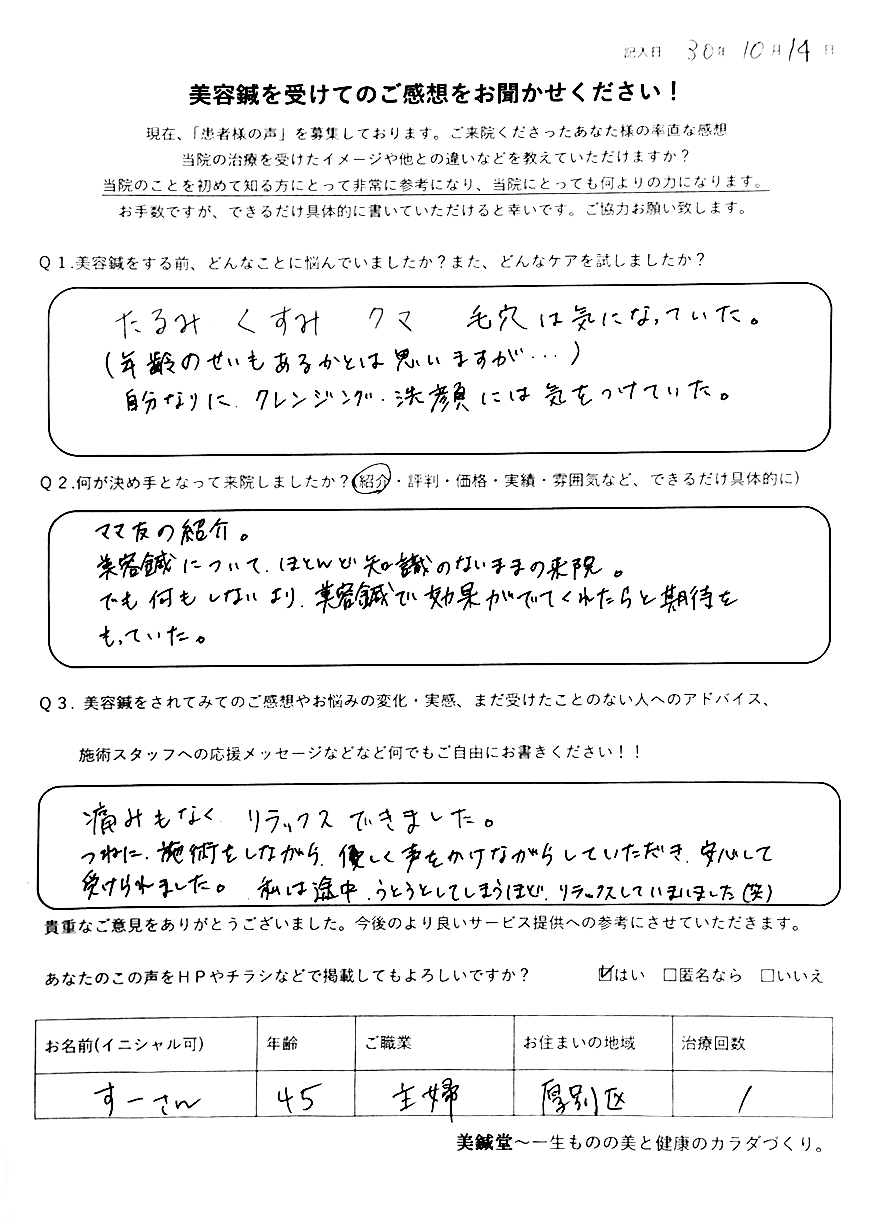 記入日 30年 10月 14日
美容鍼を受けてのご感想をお聞かせください！
現在、「患者様の声」を募集しております。ご来院くださったあなた様の率直な感想
当院の治療を受けたイメージや他との違いなどを教えていただけますか？
当院のことを初めて知る方にとって非常に参考になり、当院にとっても何よりの力になります。
お手数ですが、できるだけ具体的に書いていただけると幸いです。ご協力お願い致します。
Q１.美容鍼をする前、どんなことに悩んでいましたか？また、どんなケアを試しましたか？
たるみ くすみ クマ 毛穴は気になっていた。
(年齢のせいもあるかとは思いますが…)
自分なりに、クレンジング・洗顔には気をつけていた。
Q２.何が決め手となって来院しましたか？(紹介・評判・価格・実績・雰囲気など、できるだけ具体的に)
ママ友の紹介。
美容鍼について、ほとんど知識のないままの来院。
でも何もしないより、美容鍼で効果がでてくれたらと期待を
もっていた。
Q３. 美容鍼をされてみてのご感想やお悩みの変化・実感、まだ受けたことのない人へのアドバイス、
施術スタッフへの応援メッセージなどなど何でもご自由にお書きください！！
痛みもなく、リラックスできました。
つねに、施術をしながら、優しく声をかけながらしていただき、安心して
受けられました。 私は途中、うとうとしてしまうほど、リラックスしていまいました(笑)
貴重なご意見をありがとうございました。今後のより良いサービス提供への参考にさせていただきます。
あなたのこの声をＨＰやチラシなどで掲載してもよろしいですか？ ☑はい □匿名なら □いいえ
お名前(イニシャル可) 年齢 ご職業 お住まいの地域 治療回数
すーさん 45 主婦 厚別区 1
美鍼堂～一生ものの美と健康のカラダづくり。